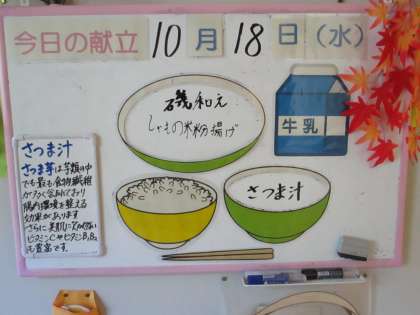 今日の献立 10月18日(水)
磯和え
ししゃもの米粉揚げ
牛乳
さつま汁
さつま汁
さつま芋は芋類の中
でも最も食物繊維
が多く含まれており
腸内環境を整える
効果があります
さらに美肌に欠かせない
ビタミンCやビタミンB₁B₆
も豊富です。